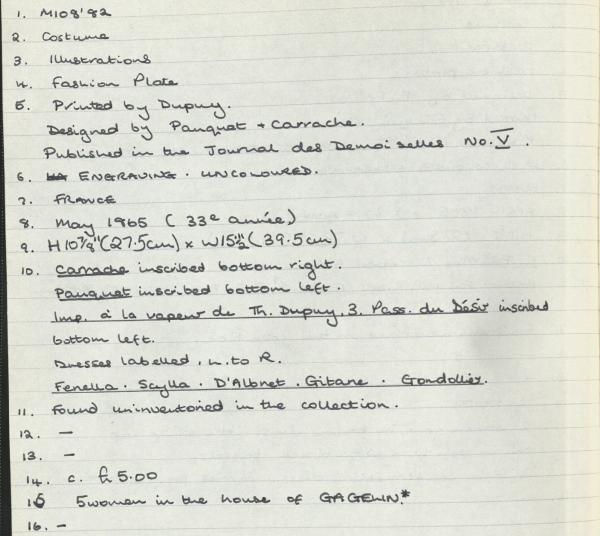 1. M108'82
2. Costume
3. Illustrations
4. Fashion Plate
5. Printed by Dupuy.
Designed by Pauquet + Carrache.
Published in the Journal des Demoiselles No. V.
6. ENGRAVING. UNCOLOURED.
7. FRANCE
8. May 1865 (33e année)
9. H 10⅞" (27.5cm) x W15½" (39.5cm)
10. Carrache inscribed bottom right.
Pauquet inscribed bottom left.
Imp. à la vapeur de Th. Dupuy, 3. Pass. du Désir inscribed
bottom left.
Dresses labelled, L. to R.
Fenella. Scylla. D'Albret. Gitane. Gondollier.
11. Found uninventoried in the collection.
12. —
13. —
14. c. £5.00
15 5 women in the house of GAGELIN.*
16. —